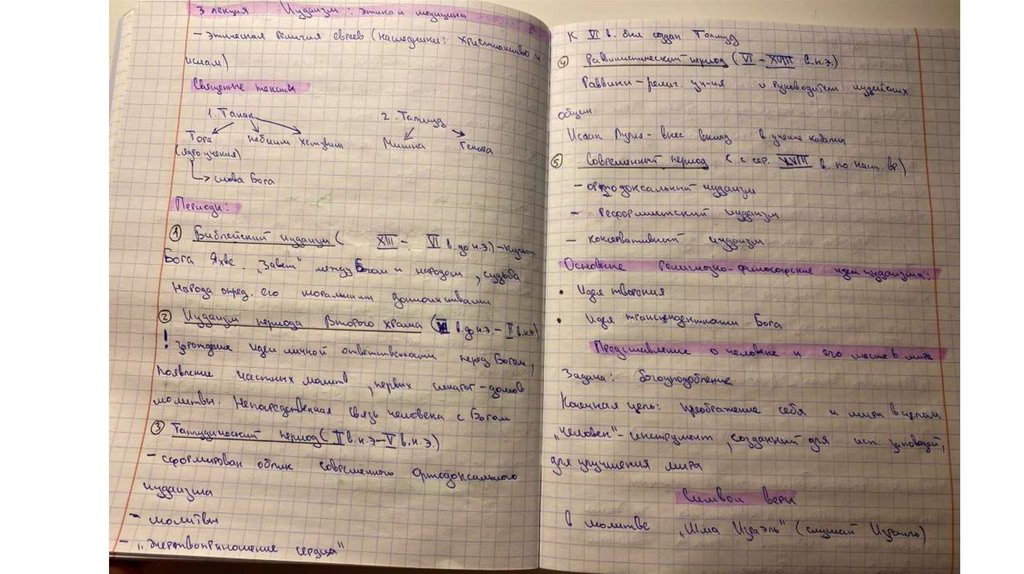 3 лекция Иудаизм: этика и медицина
- этическая религия евреев (наследники: христианство и
ислам)
Священные тексты
1. Танах 2. Талмуд
Тора небиим хетувим Мишна Гемара
(ядро учения)
слова Бога
Периоды:
1 Библейский иудаизм ( XIII - VI в. до н.э.) -
Бога Яхве. "Завет" между Богом и народом, судьба
народа опред. его моральными достоинствами
2 Иудаизм периода Второго храма ( в. до н.э. - II в. н.э)
! Зарождение идеи личной ответственности перед Богом,
появление частных молитв, первых синагог - домов
молитвы. Непосредственная связь человека с Богом
3 Талмудический период (II в. н.э - V в. н.э)
- сформирован облик современного ортодоксального
иудаизма
- молитвы
- "жертвоприношение сердца"
К VI в. был создан Талмуд
4 Раввинистический период (VI - XVIII в. н.э.)
Раввины - религ. и руководители иудейских
общин
Исаак Лурия - внес вклад в учение кабалы
5 Современный период ( с сер. XVIII в. по наст. вр)
- ортодоксальный иудаизм
- реформистский иудаизм
- консервативный иудаизм
Основные религиозно-философские идеи иудаизма:
• Идея творения
• Идея трансцендентности Бога
Представление о человеке и его месте в мире
Задача: богоуподобление
Конечная цель: преображение себя и мира в целом
"Человек" - инструмент, созданный для исп заповедей,
для улучшения мира
Символ веры
в молитве "Шма Исраэль" (слушай Израиль)